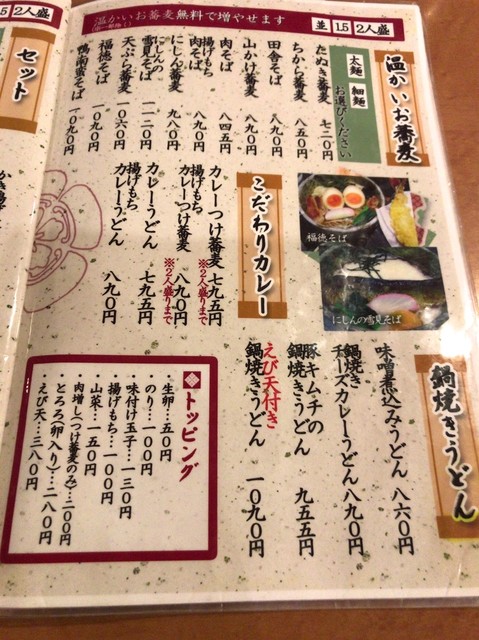 温かいお蕎麦無料で増やせます
並 1.5 2人盛
温かいお蕎麦
太麺 細麺 お選びください
たぬき蕎麦 七二〇円
ちから蕎麦 八五〇円
田舎そば 八九〇円
山かけ蕎麦 八九〇円
肉そば 八四五円
揚げもち肉そば 八九〇円
にしん蕎麦 九八〇円
にしんの雪見そば 一一二〇円
天ぷら蕎麦 一〇六〇円
福徳そば 一〇九〇円
鴨南蛮そば 一〇九〇円
福徳そば
にしんの雪見そば
こだわりカレー
カレーつけ蕎麦 七九五円
※2人盛りまで
揚げもちカレーつけ蕎麦 八九〇円
※2人盛りまで
カレーうどん 七九五円
揚げもちカレーうどん 八九〇円
鍋焼きうどん
味噌煮込みうどん 八六〇円
鍋焼きチーズカレーうどん 八九〇円
豚キムチの鍋焼きうどん 九五五円
えび天付き鍋焼きうどん 一〇九〇円
トッピング
生卵…五〇円
のり…一〇〇円
味付け玉子…一三〇円
揚げもち…一〇〇円
山菜…一五〇円
肉増し(つけ蕎麦のみ)…二〇〇円
とろろ(卵入り)…二八〇円
えび天…三八〇円
1.5 2人盛
セット